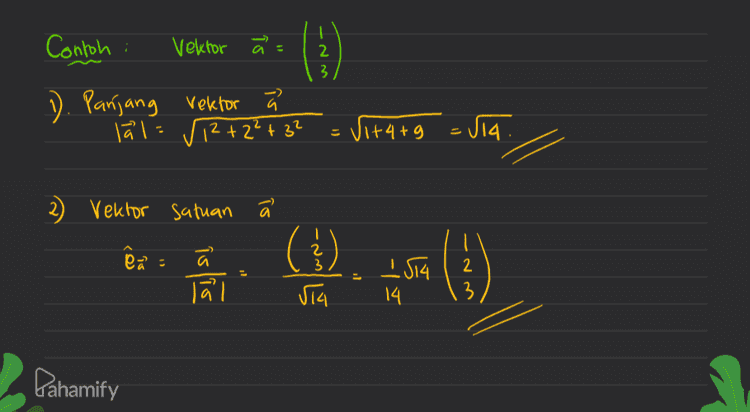 Contoh : Vektor a⃗ = (1 2 3)
1). Panjang Vektor a⃗
|a⃗| = √1² + 2² + 3² = √1+4+9 = √14.
2) Vektor satuan a⃗
ê a⃗ = a⃗ / |a⃗| = (1 2 3) / √14 = 1/14 √14 (1 2 3)
Pahamify